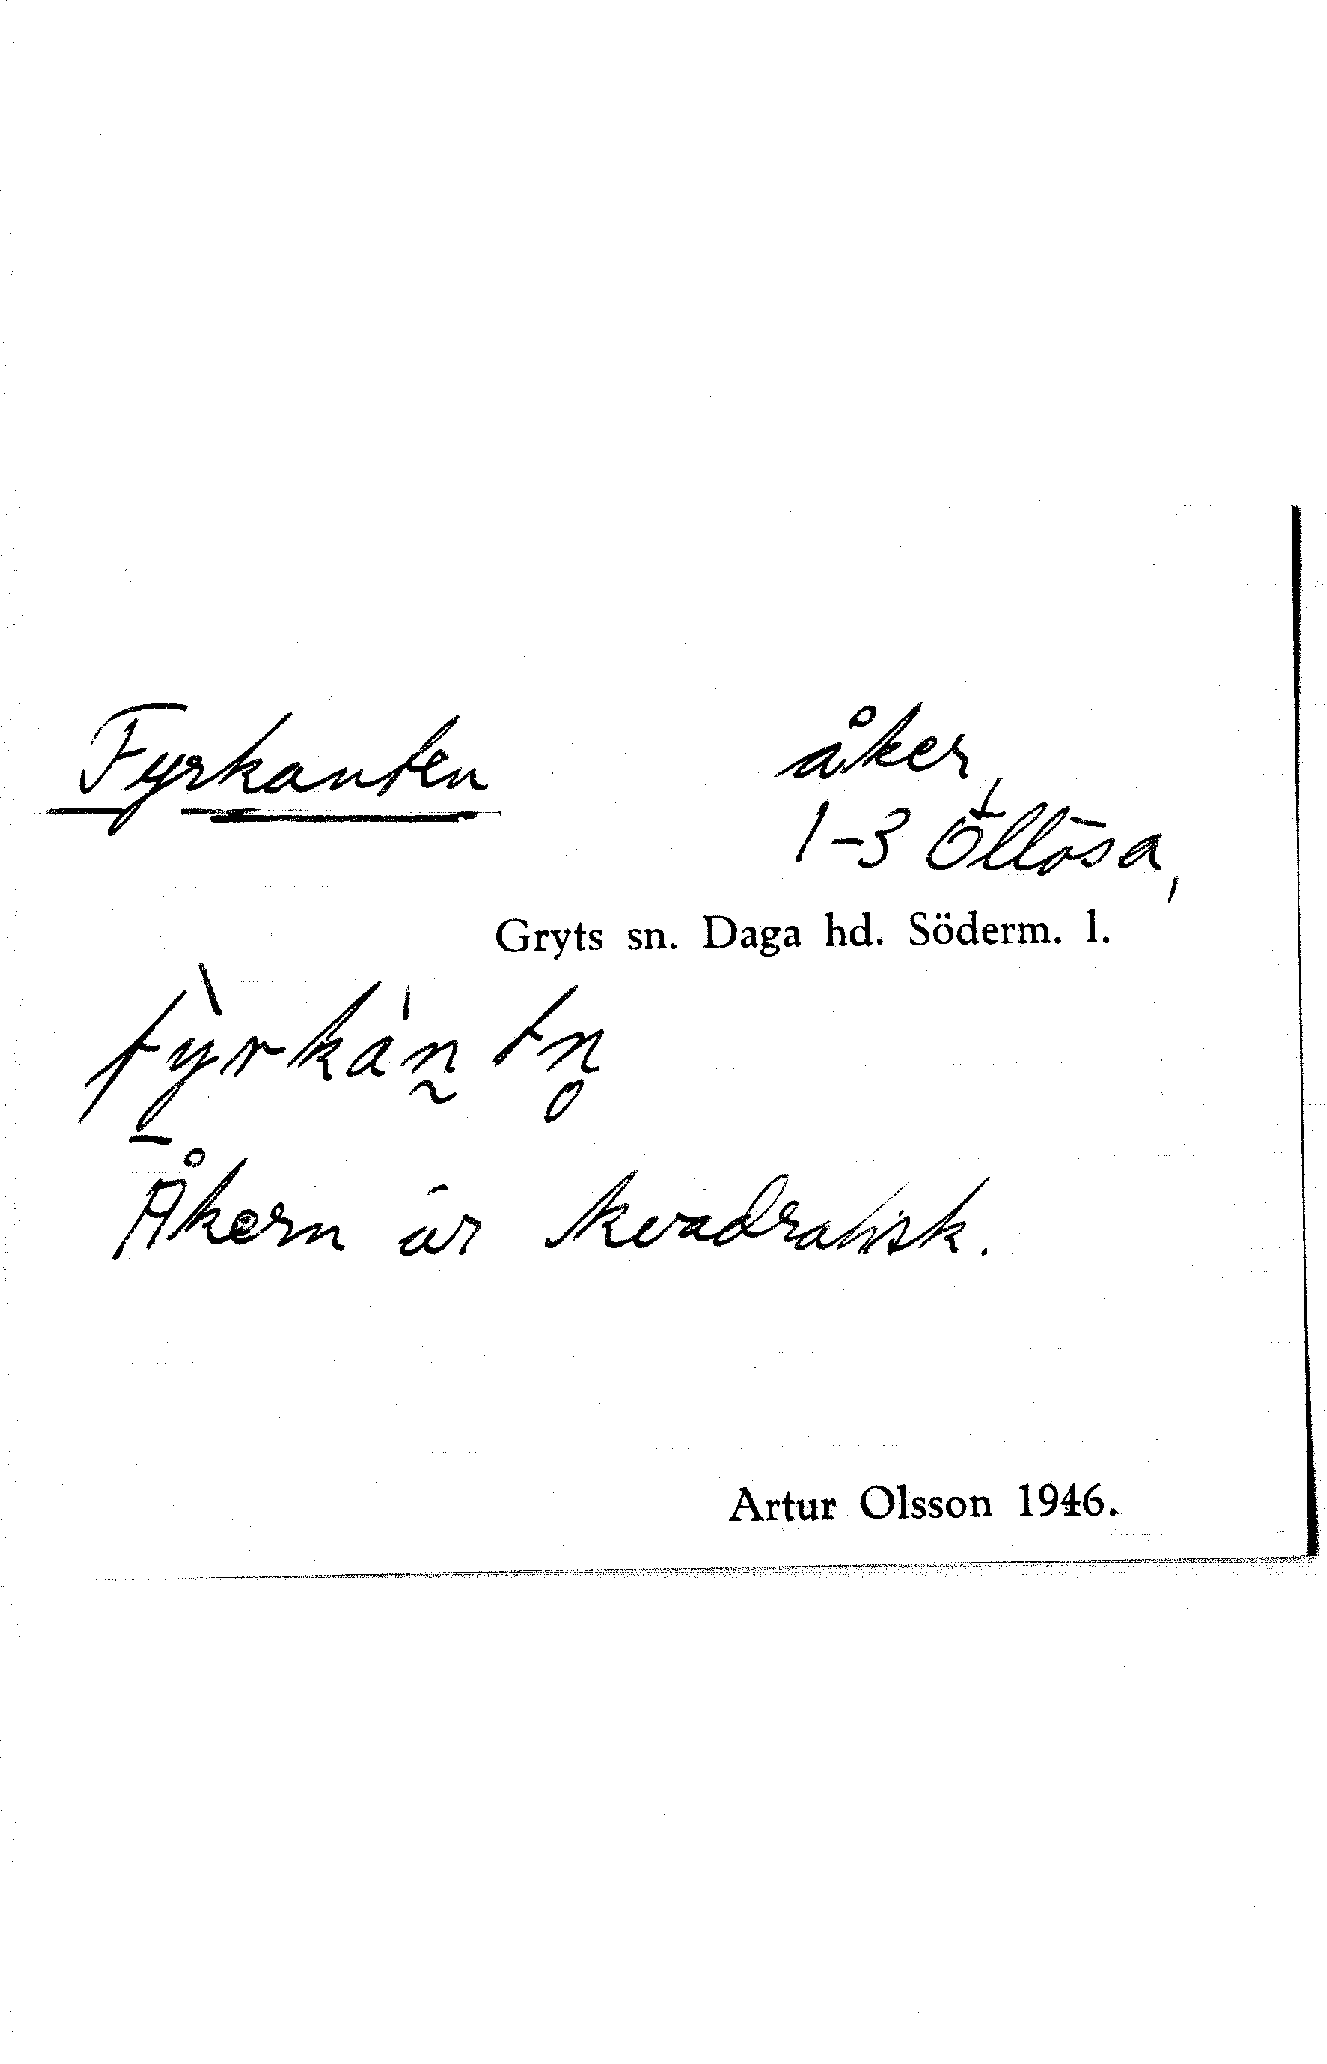 Fyrkanten
åker,
1-3 Öllösa,
Gryts sn. Daga hd. Söderm. l.
Åkern är kvadratisk.
Artur Olsson 1946.